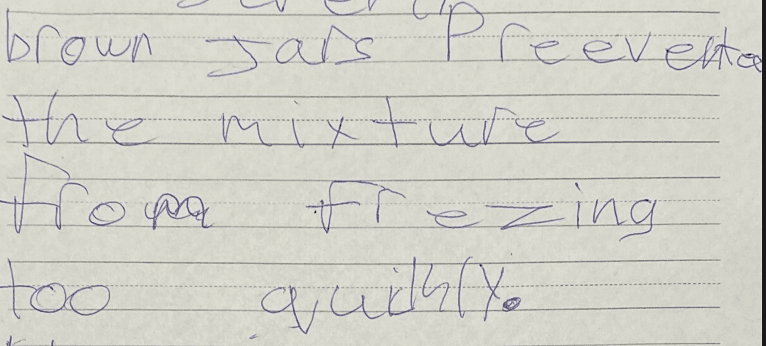 brown Jars Preevented
the mixture
from frezing
too quikly.